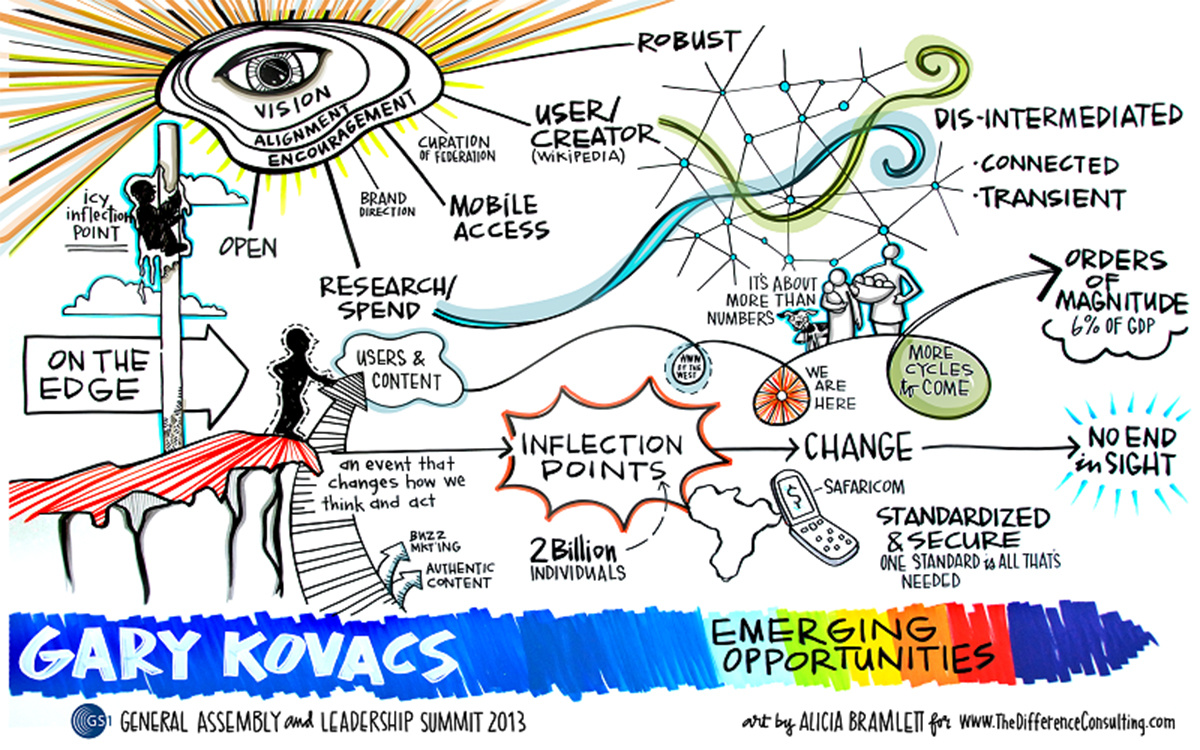 VISION
ALIGNMENT
ENCOURAGEMENT
ROBUST
USER/
CREATOR
(WIKIPEDIA)
CURATION
OF FEDERATION
BRAND
DIRECTION
MOBILE
ACCESS
OPEN
RESEARCH/
SPEND
icy
inflection
POINT
DIS-INTERMEDIATED
·CONNECTED
·TRANSIENT
IT'S ABOUT
MORE THAN
NUMBERS
ORDERS
OF
MAGNITUDE
6% OF GDP
ON THE
EDGE
USERS &
CONTENT
OF THE
WEST
WE
ARE
HERE
MORE
CYCLES
to COME
INFLECTION
POINTS
CHANGE
NO END
in SIGHT
an event that
changes how we
think and act
BUZZ
MKT'ING
AUTHENTIC
CONTENT
2 Billion
INDIVIDUALS
$
SAFARICOM
STANDARDIZED
& SECURE
ONE STANDARD is ALL THAT'S
NEEDED
GARY KOVACS
EMERGING
OPPORTUNITIES
GS1 GENERAL ASSEMBLY and LEADERSHIP SUMMIT 2013
art by ALICIA BRAMLETT for www.TheDifferenceConsulting.com